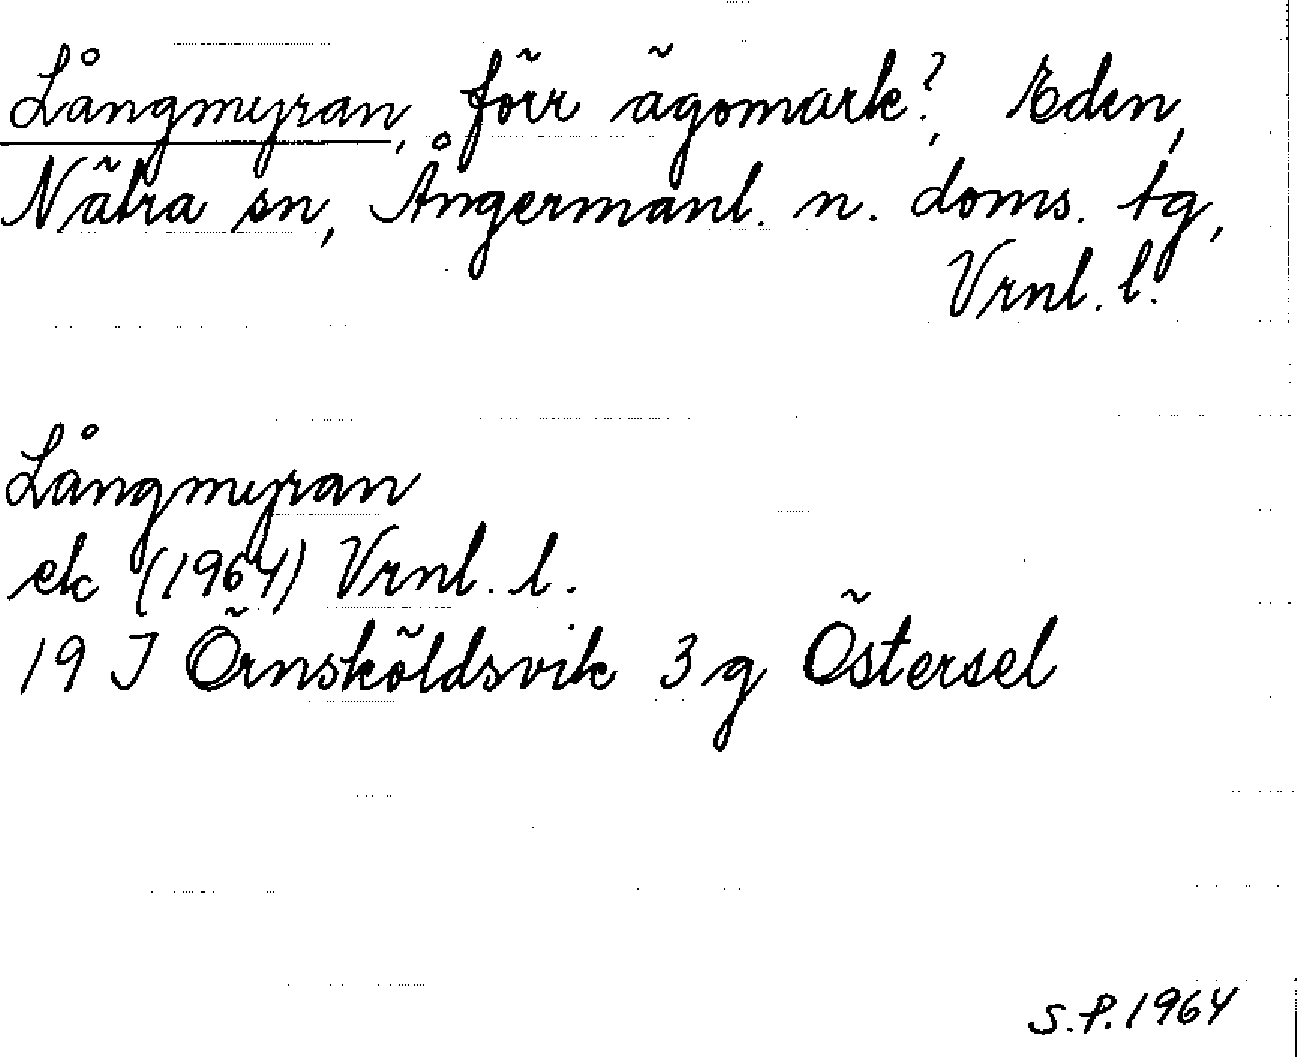 Långmyran, förr ägomark?, Eden,
Nätra sn, Ångermanl. n. doms. tg,
Vrnl. l.
Långmyran
ek (1964) Vrnl. l.
19 J Örnsköldsvik 3 g Östersel
S.P. 1964